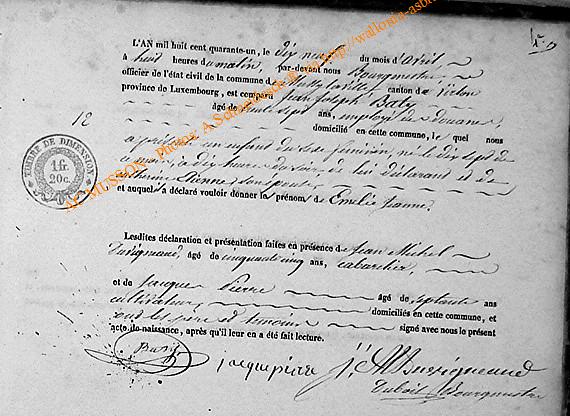 L'AN mil huit cent quarante-un, le dix neuf du mois d'avril
à huit heures du matin, par-devant nous Bourgmestre
officier de l'état civil de la commune de Mussy la ville canton de Virton
province de Luxembourg, est comparu Jean Joseph Baty
âgé de trente sept ans, employé des Douanes
domicilié en cette commune, le quel nous
a présenté un enfant du sexe féminin, né le dix sept de
ce mois, à dix heures du soir de lui déclarant et de
Catherine Pienne, son épouse
et auquel il a déclaré vouloir donner le prénom d'Emélie Jeanne.
12
TIMBRE DE DIMENSION
1 fr.
20 c.
Lesdites déclaration et présentation faites en présence de Jean Michel
âgé de cinquante cinq ans, cabaretier,
et de Jacques Pierre âgé de septante ans
cultivateur domiciliés en cette commune, et
ont les père et témoins signé avec nous le présent
acte de naissance, après qu'il leur en a été fait lecture.
Baty jacque pierre
Bourgmestre
MUSSON Photos: A. http://wallonia-asbl